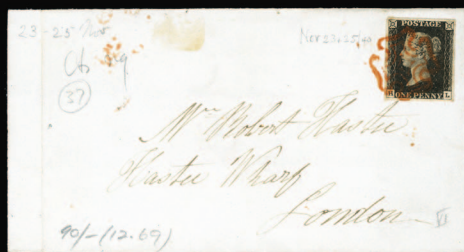 23-25 Nov
Nov 23-25/40
37
POSTAGE
ONE PENNY
L
Robert Hastie
Hastie Wharf
London
VI
90/- (12.69)